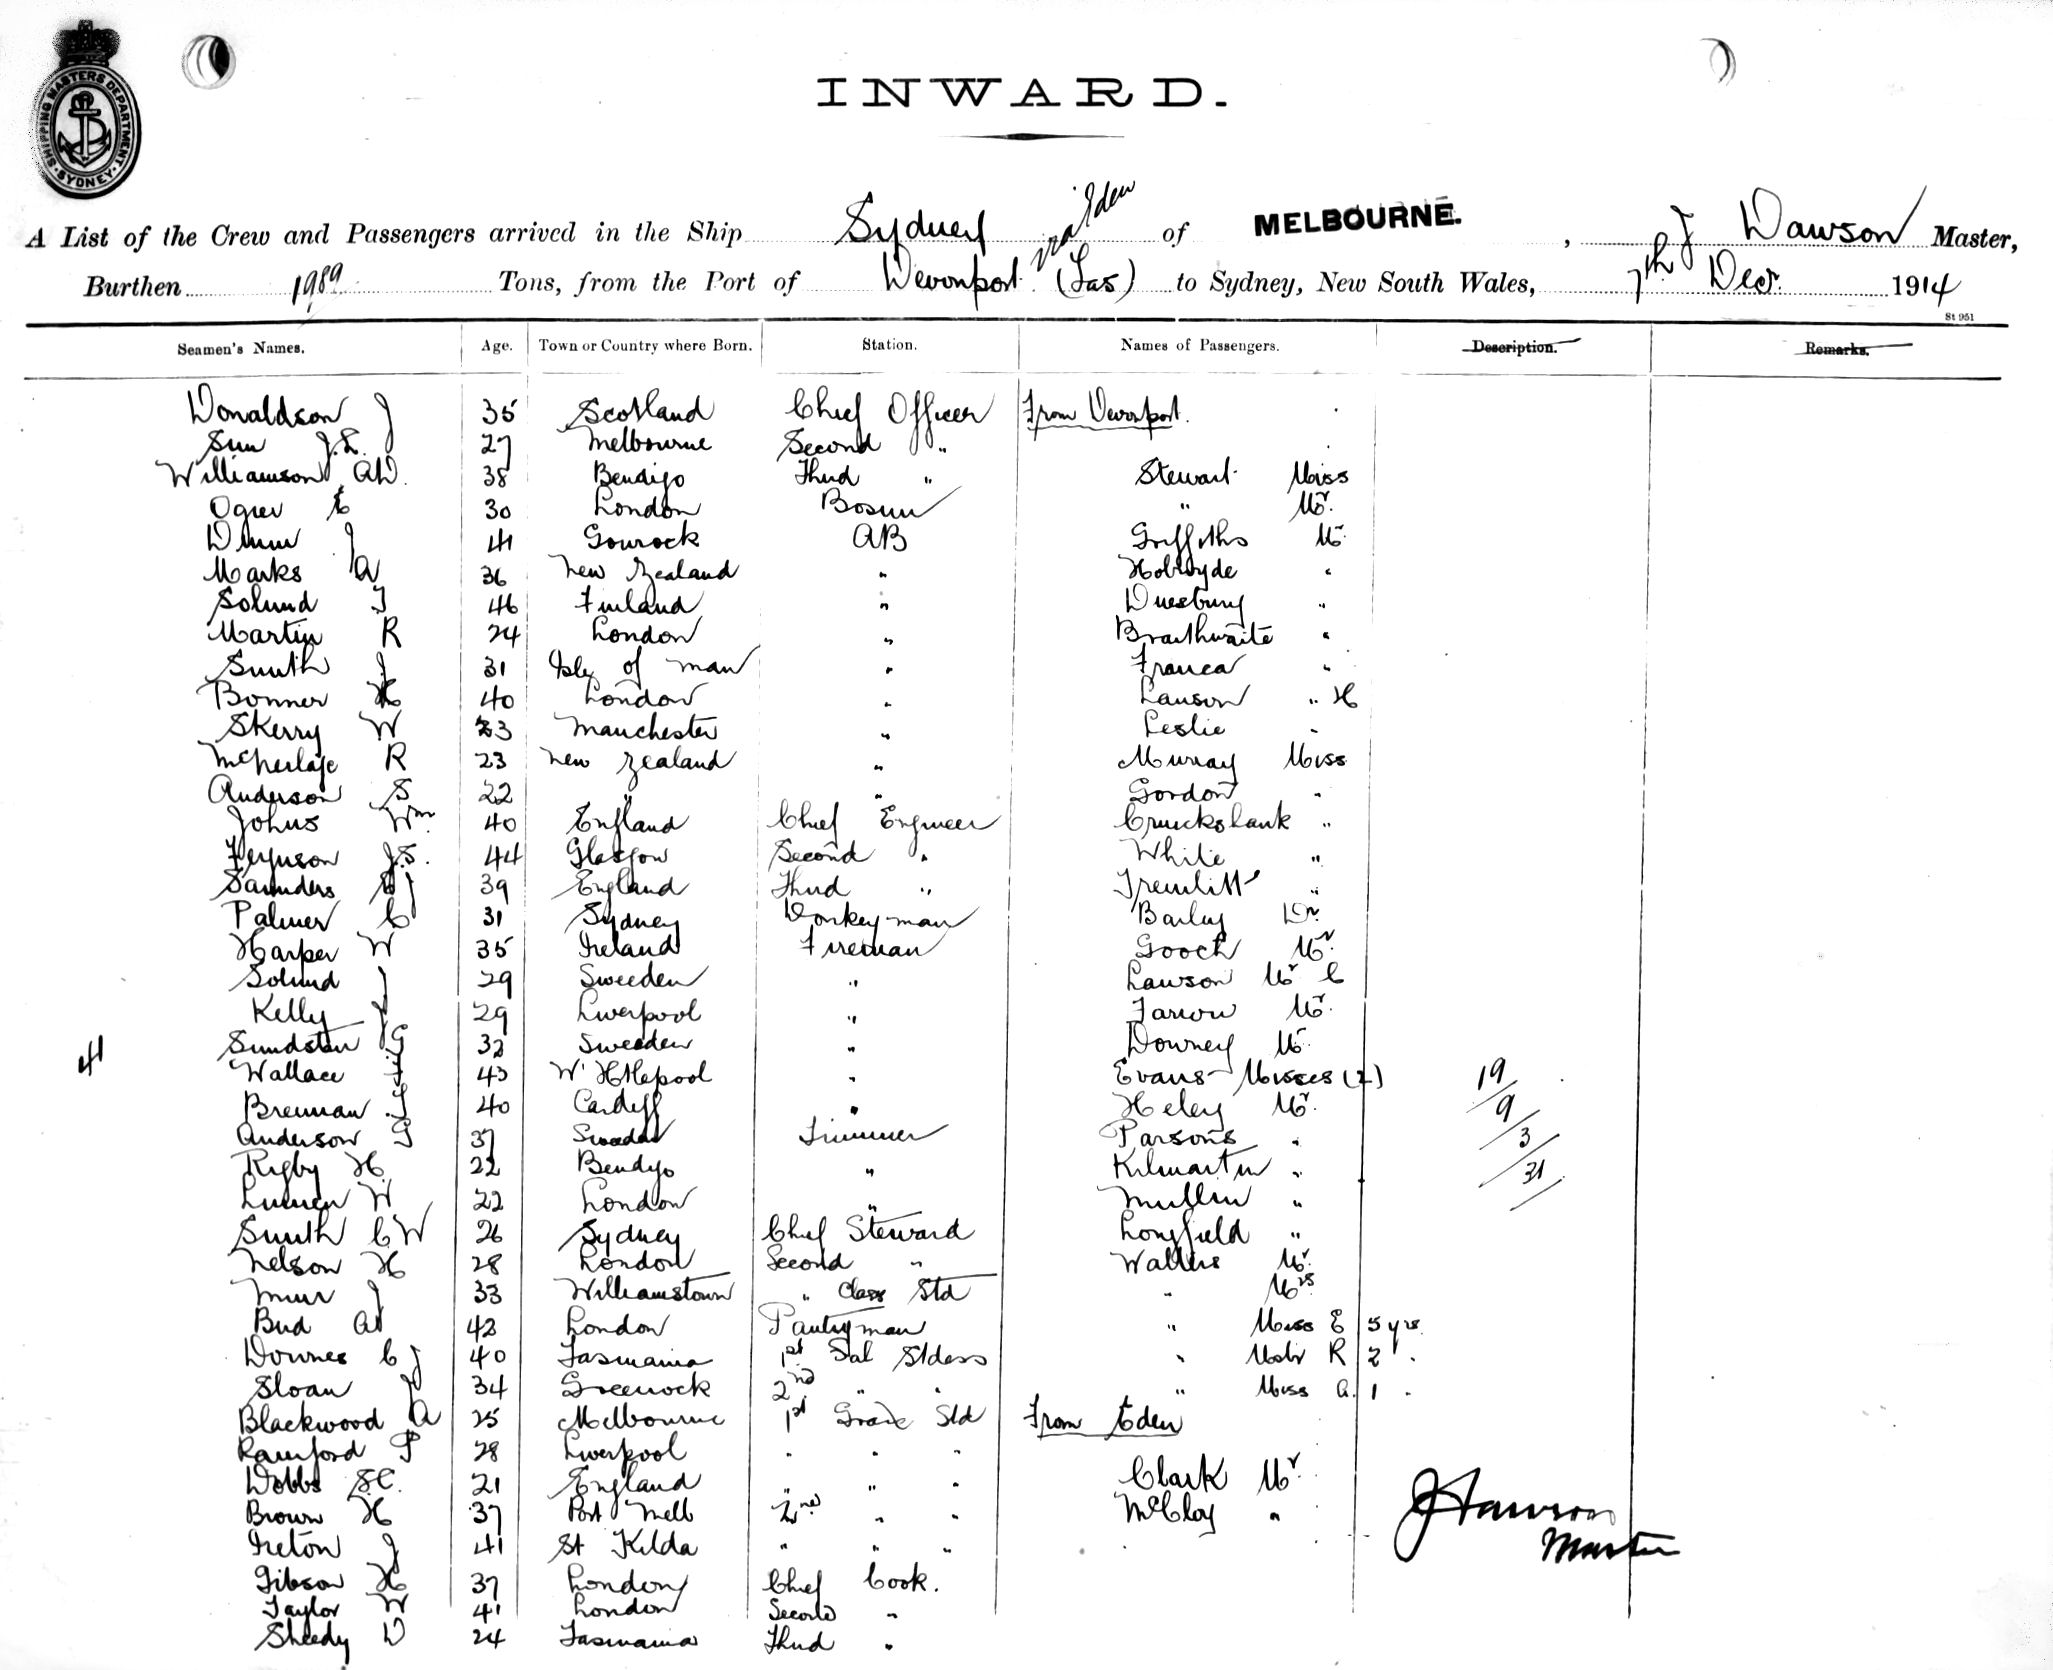 SHIPPING MASTERS DEPARTMENT. SYDNEY.
INWARD.
A List of the Crew and Passengers arrived in the Ship Sydney via Eden of MELBOURNE. , J Dawson Master,
Burthen 1989 Tons, from the Port of Devonport (Tas) to Sydney, New South Wales, 7th Decr. 1914
St 951
Seamen's Names. Age. Town or Country where Born. Station. Names of Passengers. Description. Remarks.
Donaldson J 35 Scotland Chief Officer From Devonport.
Sim J.L. 27 Melbourne Second "
Williamson AW. 38 Bendigo Third " Stewart Miss
Ogier E 30 London Bosun " Mr.
Dunn J 41 Gourock AB Griffiths Mr.
Marks A 36 New Zealand " Holroyde "
Solund J 46 Finland " Duesbury "
Martin R 24 London " Braithwaite "
Smith J 31 Isle of Man " Franca "
Bonner H 40 London " Lawson " H
Skerry W 23 Manchester " Leslie "
R 23 New Zealand " Murray Miss
Anderson S 22 " " Gordon "
Johns Wm 40 England Chief Engineer Cruickshank "
Ferguson J.S. 44 Glasgow Second " White "
Saunders J 39 England Third " Tremlitt "
Palmer C 31 Sydney Donkeyman Bailey Dr.
Harper W 35 Ireland Fireman Gooch Mr.
Solund J 29 Sweeden " Lawson Mr C
Kelly J 29 Liverpool " Farrow Mr.
41 Sundsten G 32 Sweeden " Downey Mr
Wallace 43 W. Htlepool " Evans Misses (2) 19
Brennan J 40 Cardiff " Heley Mr. 9
Anderson G 37 Sweeden Trimmer Parsons " 3
Rigby H. 22 Bendigo " Kilmartin " 31
W 22 London " Mullin "
Smith C W 26 Sydney Chief Steward Longfield "
Nelson H 28 London Second " Walters Mr.
Muir J 33 Williamstown " Class Std " Mrs
Bird A 42 London Pantryman " Miss E 5 yrs.
Downes C J 40 Tasmania 1st Sal Stdess " Mstr R 2 "
Sloan J 34 Greenock 2nd " " " Miss A. 1 "
Blackwood A 25 Melbourne 1st Grade Std From Eden
Rainford P 28 Liverpool " " "
Dobbs S.C. 21 England " " " Clark Mr.
Brown H 37 Port Melb 2nd " " McCloy "
Ireton J 41 St Kilda " " "
Gibson H 37 London Chief Cook.
Taylor W 41 London Second "
Sheedy D 24 Tasmania Third "
J Dawson
Master